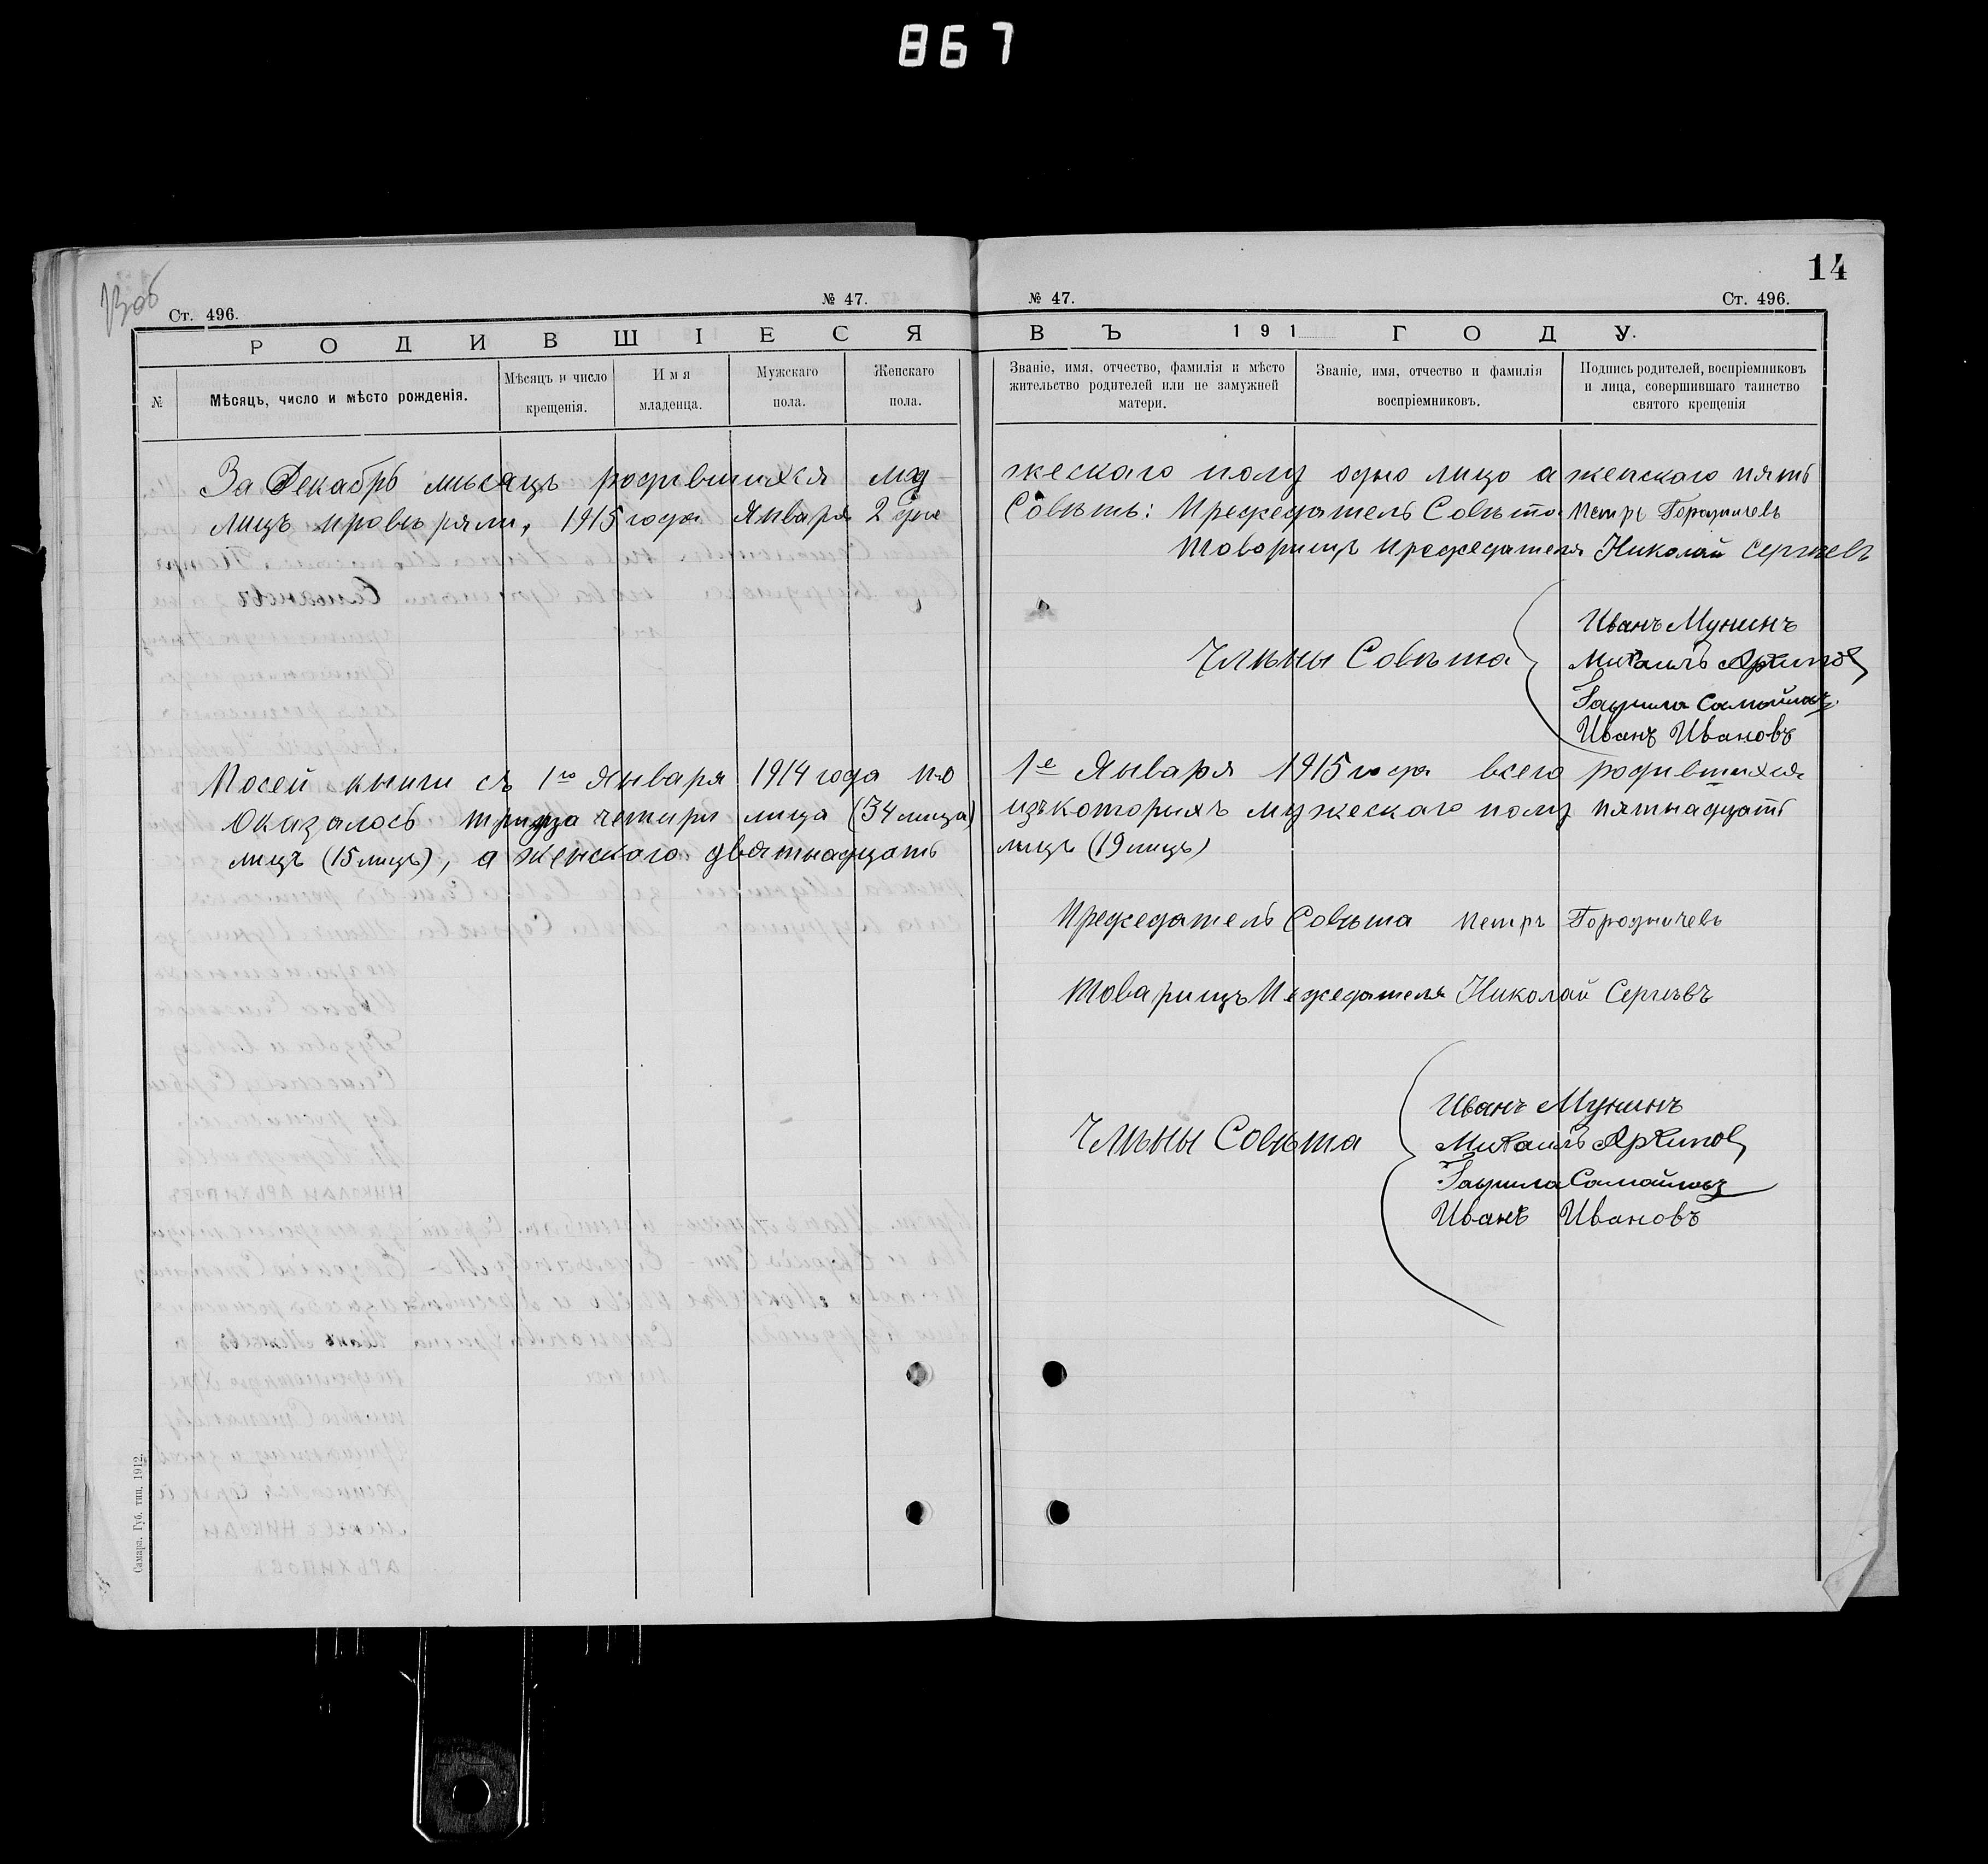 867
14
Ст. 496.
№ 47.
№ 47.
Ст. 496.
РОДИВШІЕСЯ
ВЪ 191 ГОДУ.
№
Мѣсяцъ, число и мѣсто рожденія.
Мѣсяцъ и число крещенія.
Имя младенца.
Мужскаго пола.
Женскаго пола.
Званіе, имя, отчество, фамилія и мѣсто
жительство родителей или не замужней
матери.
Званіе, имя, отчество и фамилія
воспріемниковъ.
Подпись родителей, воспріемниковъ
и лица, совершившаго таинство
святого крещенія
За Декабрь мѣсяцъ родившихся му-
жескаго полу одно лицо а женскаго пять
лицъ провѣряли, 1915 года Января 2 дня
Совѣтъ: Председатель Совѣта Петръ Городничевъ
Товарищъ председателя Николай Сергѣевъ
Члѣны Совѣта
Иванъ Мунинъ
Михаилъ Архипов
Гаврила Самойловъ
Иванъ Ивановъ
Посей книги съ 1го Января 1914 года по
1е Января 1915 года всего родившихся
оказалось тридца четыри лица (34 лица)
изъ которыхъ мужескаго полу пятнадцать
лицъ (15 лицъ), а женскаго девятнадцать
лицъ (19 лицъ)
Председатель Совѣта Петръ Городничевъ
Товарищъ Председателя Николай Сергѣвъ
Члѣны Совѣта
Иванъ Мунинъ
Михаилъ Архипов
Гаврила Самойловъ
Иванъ Ивановъ
Самара. Губ. тип. 1912.